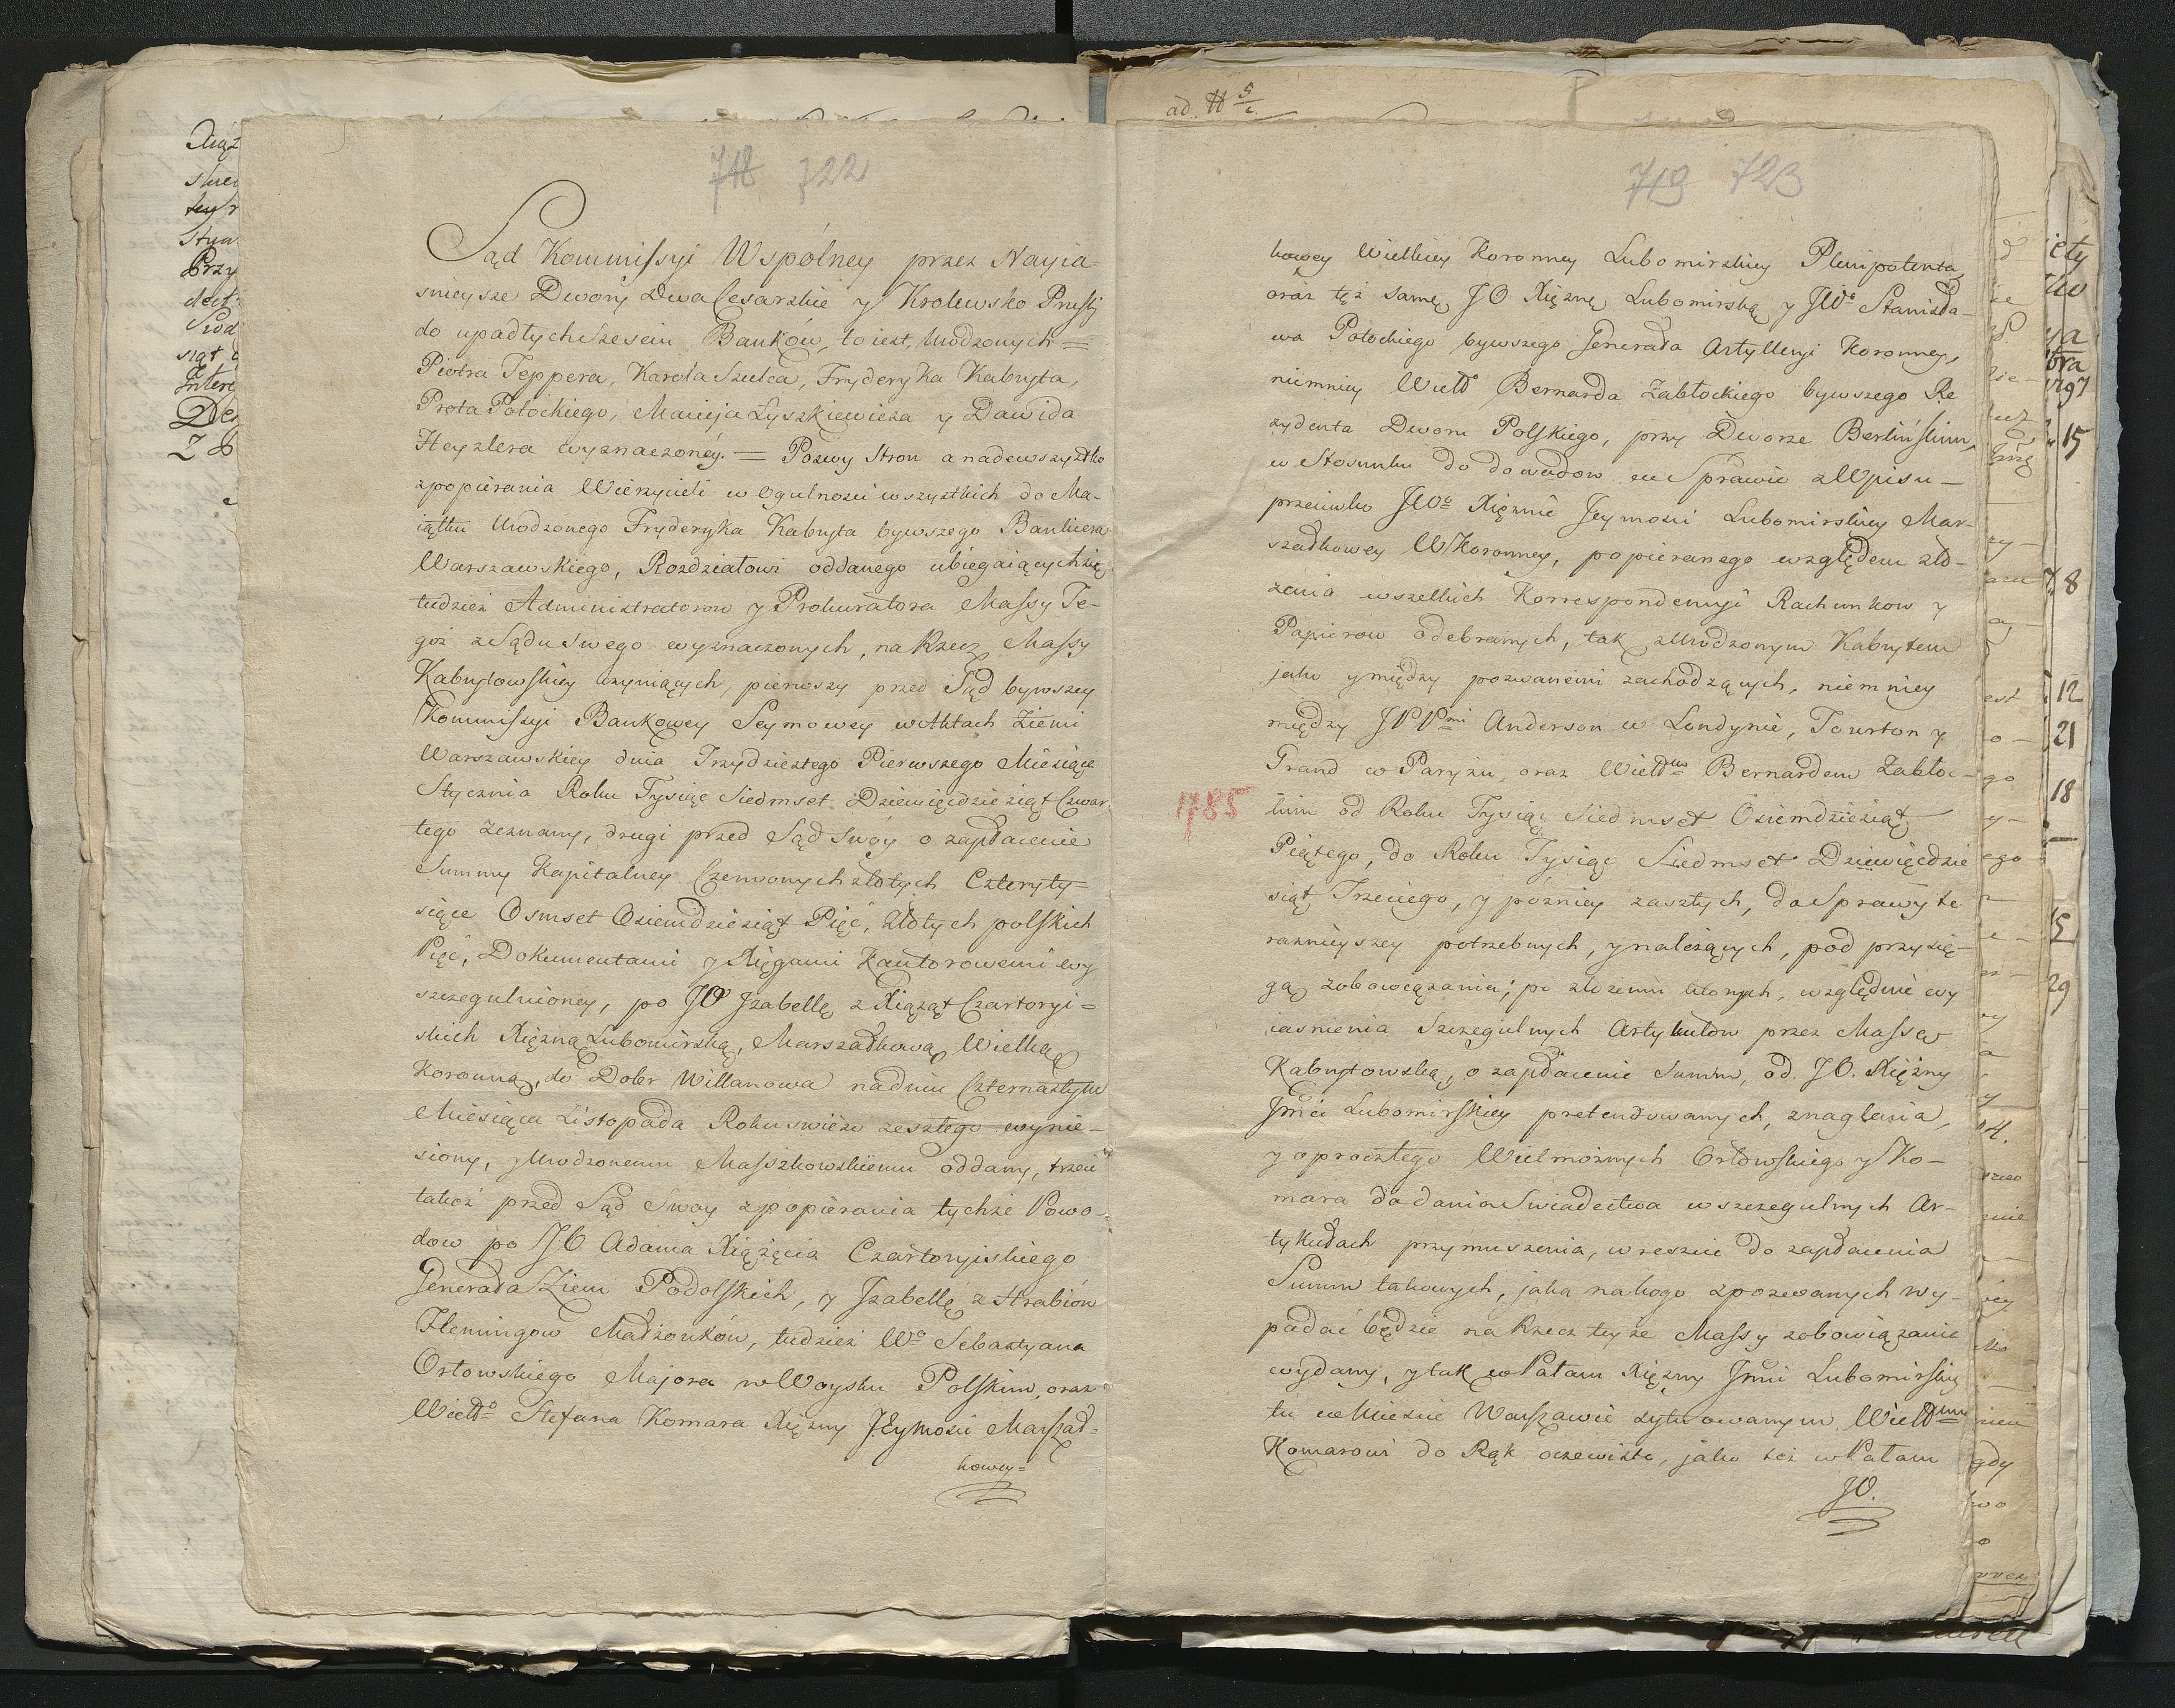 718 722
Sąd Kommissyi Wspólney przez Nayia-
snieysze Dwory Dwa Cesarskie y Krolewsko Pruski
do upadłych Szesciu Banków, to iest, Urodzonych =
Piotra Teppera, Karola Szulca, Fryderyka Kabryta,
Prota Potockiego, Macieja Łyszkiewicza y Dawida
Heyzlera wyznaczoney. = Pozwy Stron a nadewszystko
zpopierania Wierzycieli w Ogulnosci wszystkich do Ma-
iątku Urodzonego Fryderyka Kabryta bywszego Bankiera
Warszawskiego, Rozdziałowi oddanego ubiegaiących się
tudzież Administratorow y Prokuratora Massy Te-
goż z Sądu Swego wyznaczonych, na Rzecz Massy
Kabrytowskiey czyniących, pierwszy przed Sąd bywszey
Kommissyi Bankowey Seymowey w Aktach Ziemi
Warszawskiey dnia Trzydziestego Pierwszego Miesiąca
Stycznia Roku Tysiąc Siedmset Dziewięćdziesiąt Czwar
tego zeznany, drugi przed Sąd Swóy o zapłacenie
Summy Kapitalney Czerwonych złotych Cztery ty-
siące Osmset Osiemdziesiąt Pięć, złotych polskich
Pięć, Dokumentami y Xięgami Kantorowemi wy
szczegulnioney, po JO Izabellę z Xiążąt Czartoryi=
skich Xięzną Lubomirską, Marszałkową Wielką
Koronną, do Dobr Willanowa na dniu Czternastym
Miesiąca Listopada Roku swieżo zeszłego wynie-
siony, y Urodzonemu Maszkowskiemu oddany, trzeci
takoż przed Sąd Swoy zpopierania tychże Powo-
dow po JO Adama Xiążęcia Czartoryiskiego
Generała Ziem Podolskich, y Izabellę z Hrabiow
Flemingow Małżonków, tudzież Wo Sebastyana
Orłowskiego Majora w Woysku Polskim, oraz
Wielło Stefana Komara Xiężny JEymosci Marszał=
kowey=
ad. H 5/c
719 723
kowey Wielkiey Koronney Lubomirskiey Plenipotenta,
oraz też samę JO Xiężnę Lubomirską y JWo Stanisła-
wa Potockiego bywszego Generała Artylleryi Koronney,
niemniey Wielło Bernarda Zabłockiego bywszego Re
zydenta Dworu Polskiego, przy Dworze Berlińskim,
w Stosunku do dowodow w Sprawie z Wpisu-
przeciwko JWo Xięznie Jeymosci Lubomirskiey Mar-
szałkowey W Koronney, popieranego względem zło-
żenia wszelkich Korrespondencyi Rachunkow y
Papierow odebranych, tak z Urodzonym Kabrytem
jako y między pozwanemi zachodzących, niemniey
między JPPmi Anderson w Londynie, Tourton y
Grand w Paryżu, oraz Wiellłm Bernardem Zabłoc-
1785
kim od Roku Tysiąc Siedmset Osiemdziesiąt
Piątego, do Roku Tysiąc Siedmset Dziewięćdzie
siąt Trzeciego, y pózniey zaszłych, do Sprawy te
raznieyszey potrzebnych, y należących, pod przysię-
gą zobowiązania; po złożeniu których, względnie wy
iasnienia Szczegulnych Artykułow przez Massę
Kabrytowską, o zapłacenie Summ, od JO. Xięzny
Jmci Lubomirskiey pretendowanych, znaglenia,
y oprocz tego Wielmożnych Orłowskiego y Ko-
mara do dania Swiadectwa w szczegulnych Ar-
tykułach przymuszenia, w reszcie do zapłacenia
Summ takowych, jaka na kogo z pozwanych wy-
padać będzie na Rzecz teyże Massy zobowiązania
wydany, y tak w Pałacu Xięzny Jmci Lubomirskiey
tu w Miescie Warszawie sytuowanym Wiellłmu
Komarowi do Rąk oczewisto, jako też w Pałacu
JO.